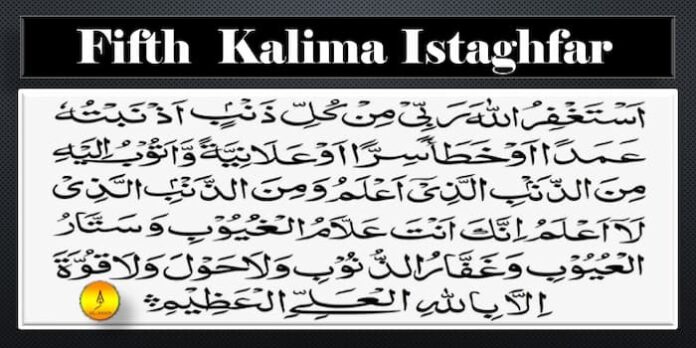 Fifth Kalima Istaghfar
اَسْتَغْفِرُ اللهَ رَبِّىْ مِنْ كُلِّ ذَنْۢبٍ اَذْنَبْتُهٗ
عَمَدًا اَوْ خَطَأً سِرًّا اَوْ عَلَانِيَةً وَّاَتُوْبُ اِلَيْهِ
مِنَ الذَّنْۢبِ الَّذِىْٓ اَعْلَمُ وَمِنَ الذَّنْۢبِ الَّذِىْ
لَآ اَعْلَمُ اِنَّكَ اَنْتَ عَلَّامُ الْغُيُوْبِ وَسَتَّارُ
الْعُيُوْبِ وَغَفَّارُ الذُّنُوْبِ وَلَا حَوْلَ وَلَا قُوَّةَ
اِلَّا بِاللهِ الْعَلِىِّ الْعَظِيْمِ